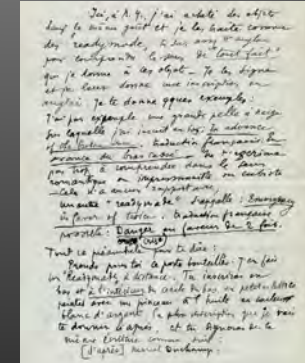 Ici, à N.Y., j'ai acheté des objets
dans le même goût et je les traite comme
des "readymade", tu sais assez d'anglais
pour comprendre le sens de "tout fait"
que je donne à ces objets - Je les signe
et je leur donne une inscription en
anglais. Je te donne qques exemples:
J'ai par exemple une grande pelle à neige
sur laquelle j'ai inscrit en bas: In advance
of the broken arm. traduction française: En
avance du bras cassé - Ne t'escrime
pas trop à comprendre dans le sens
romantique ou impressionniste ou cubiste
- Cela n'a aucun rapport avec;
un autre "readymade" s'appelle: Emergency
in favor of twice. traduction française
possible: Danger en faveur de 2 fois.
(crise)
Tout ce préambule pour te dire:
Prends pour toi ce porte bouteilles. J'en fais
un "Readymade" à distance. Tu inscriras en
bas et à l'intérieur du cercle du bas en petites lettres
peintes avec un pinceau à l'huile en couleur
blanc d'argent la inscription que je vais
te donner ci après, et tu signeras de la
même écriture comme suit:
[d'après] Marcel Duchamp.